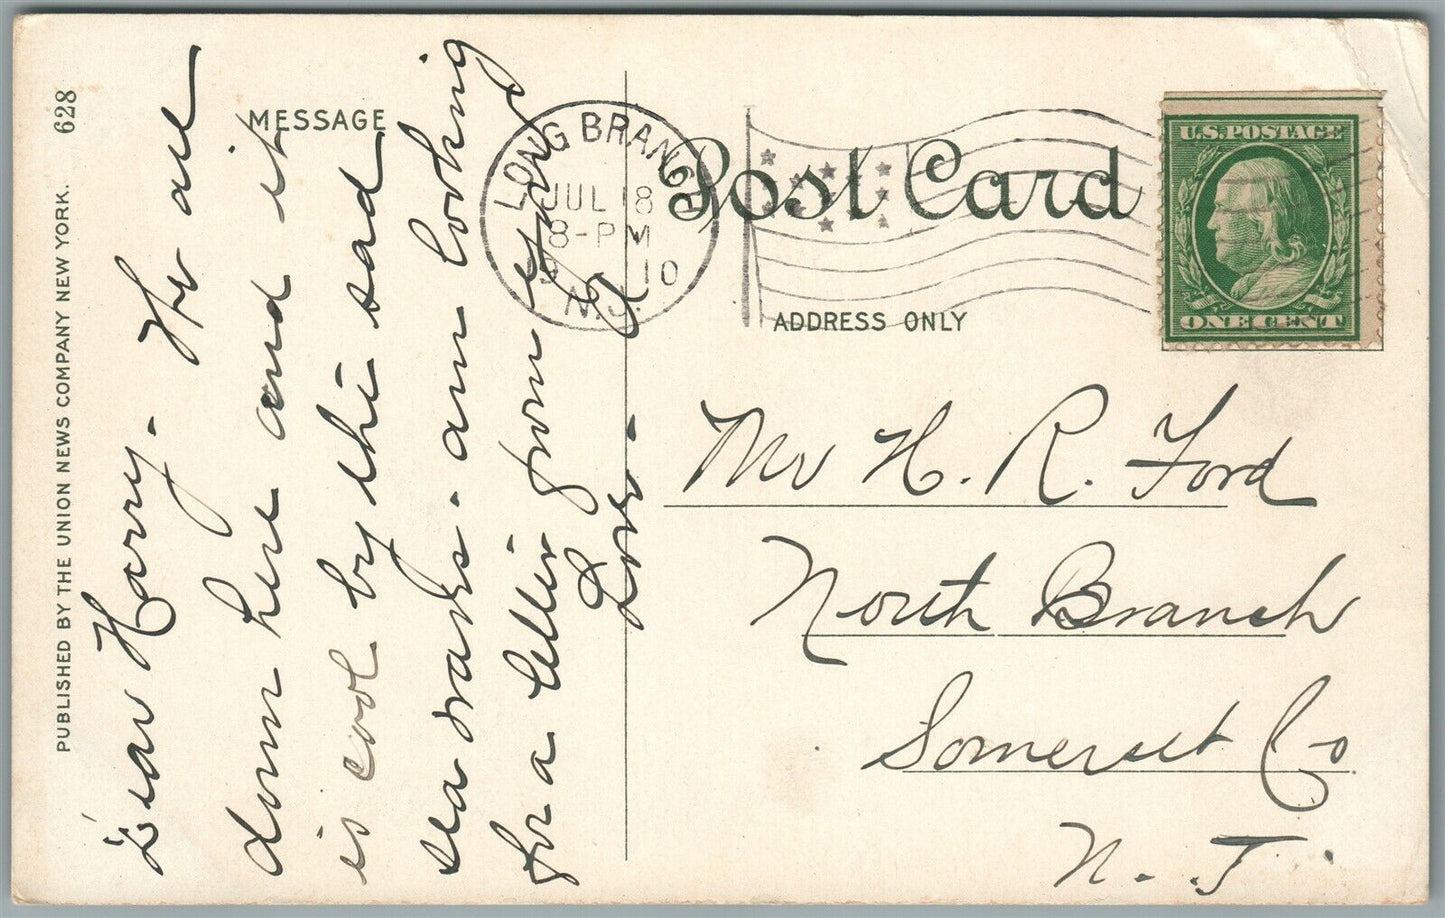 628
PUBLISHED BY THE UNION NEWS COMPANY NEW YORK.
MESSAGE
Dear Harry - We are
down here and it
is cool by the sad
sea waves - am looking
for a letter from
Love -
LONG BRANCH
JUL 18
8-PM
1910
N.J.
Post Card
ADDRESS ONLY
U.S. POSTAGE
ONE CENT
Mr H. R. Ford
North Branch
Somerset Co
N. J.